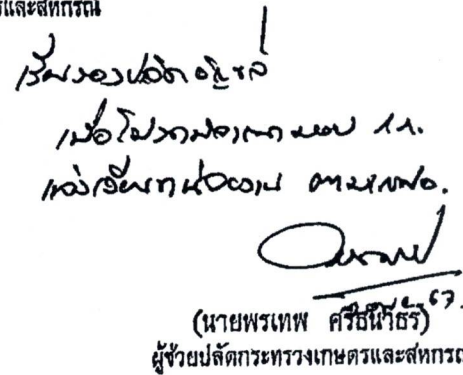 รและสหกรณ์
เรียน รองปลัดฯ
เพื่อโปรดพิจารณามอบ
แจ้งเวียนหน่วยงาน ตามเสนอ.
(นายพรเทพ ศรีธนาธร)
ผู้ช่วยปลัดกระทรวงเกษตรและสหกรณ